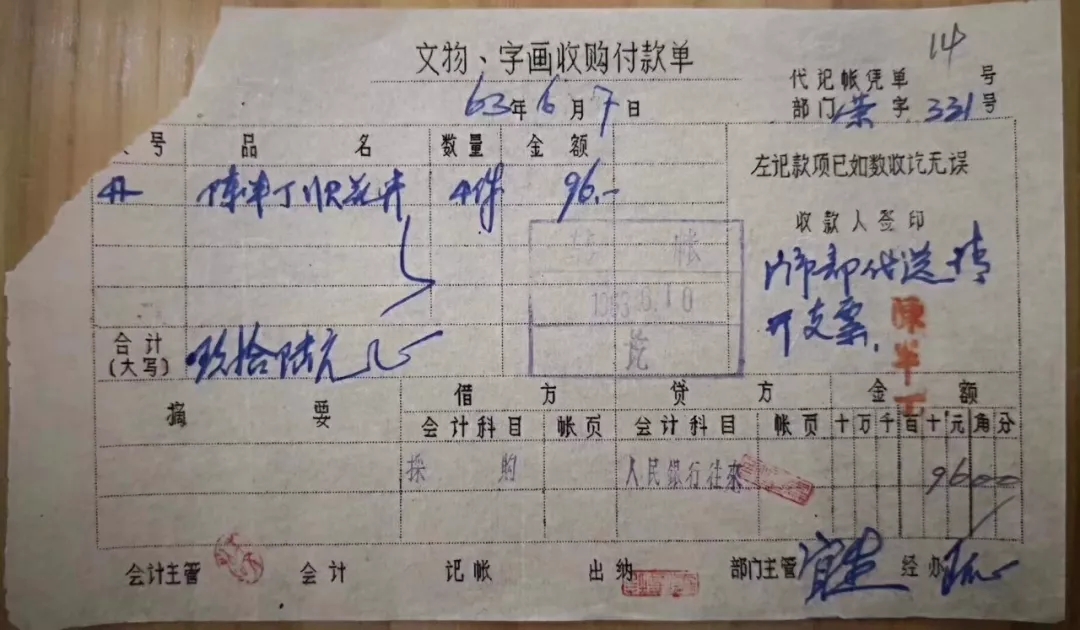 14
文物、字画收购付款单
代记帐凭单 号
63年6月7日
部门荣字331号
号 品 名 数量 金额
左记款项已如数收讫无误
陈半丁 花卉 4件 96.-
收款人签印
转 帐
1963.6.10
讫
代送请
开支票.
陳半丁
合计
(大写) 玖拾陆元
摘 要 借 方 贷 方 金 额
会计科目 帐页 会计科目 帐页 十万千百十元角分
採 购 人民银行往来 9600
会计主管 会计 记帐 出纳 部门主管 经办